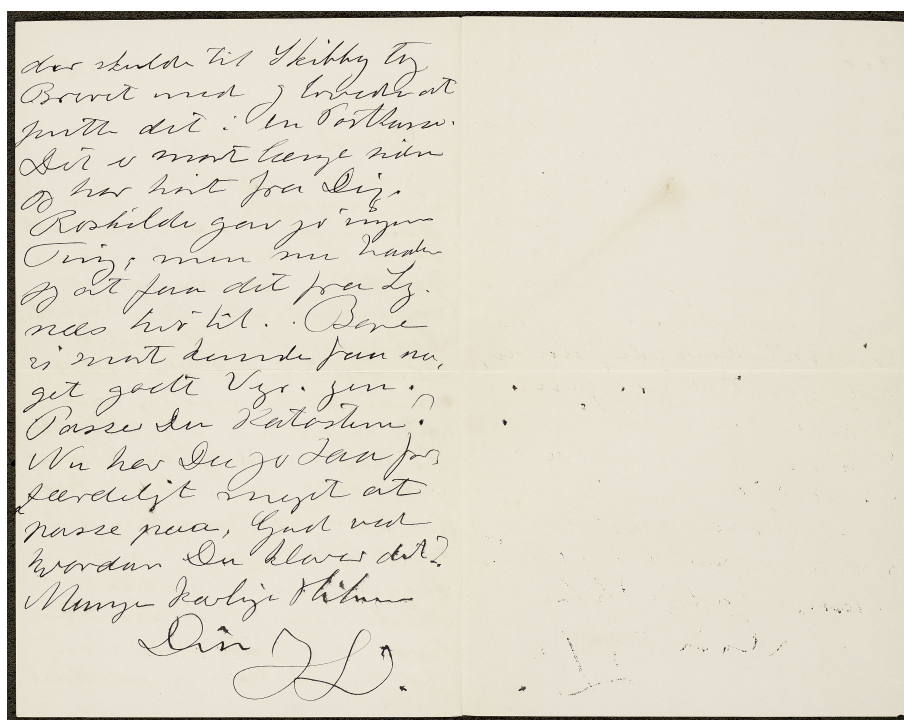 der skulde til Skibby tog
Brevet med og lovede at
putte det i en Postkasse.
Det er snart længe siden
jeg har hørt fra Dig.
Roskilde gav jo ingen
Ting, men nu haaber
jeg at faa det fra Ly-
næs hertil. Bare
vi snart kunde faa no-
get godt Vejr igen.
Passer Du Katosten?
Nu har Du jo saa for-
færdeligt meget at
passe paa, Gud ved
hvordan Du klarer det?
Mange kærlige Hilsner
Din JL.